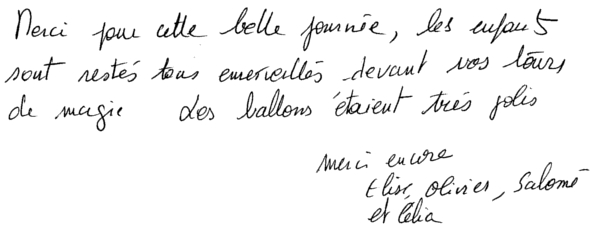 Merci pour cette belle journée, les enfants
sont restés tous emerveillés devant vos tours
de magie Les ballons étaient très jolis
merci encore
Elise, Olivier, Salomé
et Célia